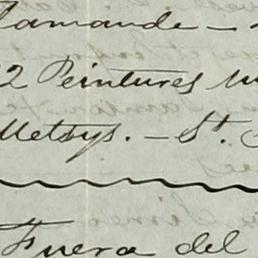 lamande —
2 Peintures
Metsys. — St.
Fuera del